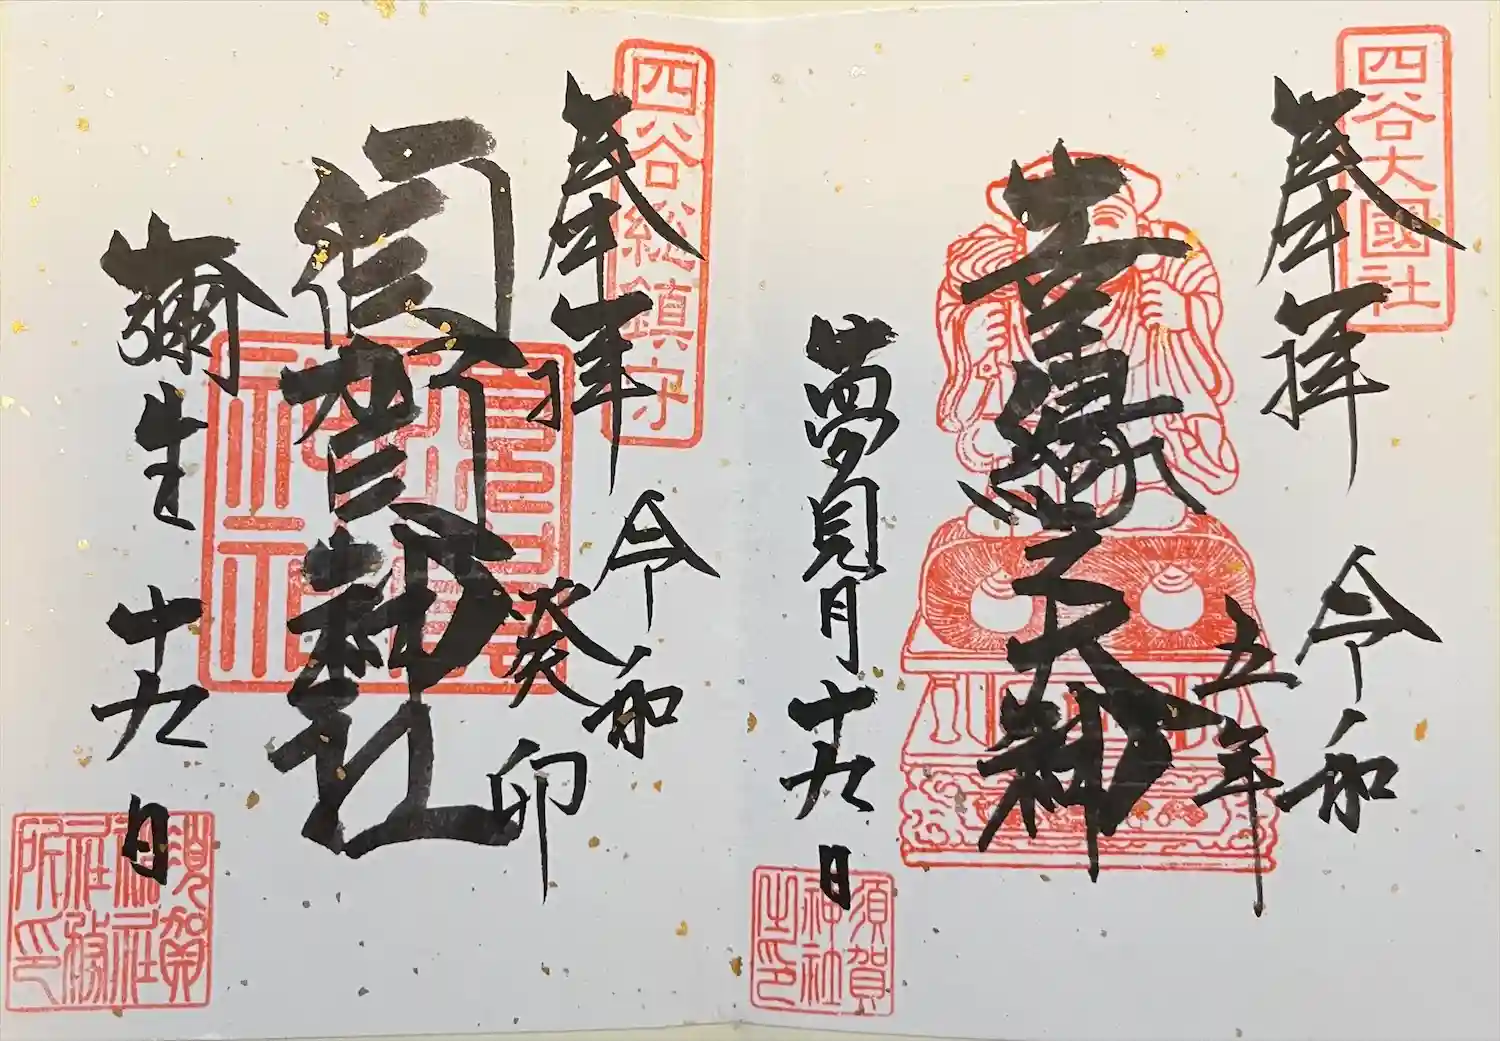 四谷大國社
奉拝
令和
五年
吉縁大神
夢見月十九日
須賀
神社
之印
四谷総鎮守
奉拝
令和
癸卯
須賀神社
彌生十九日
須賀
神社
社務
所印